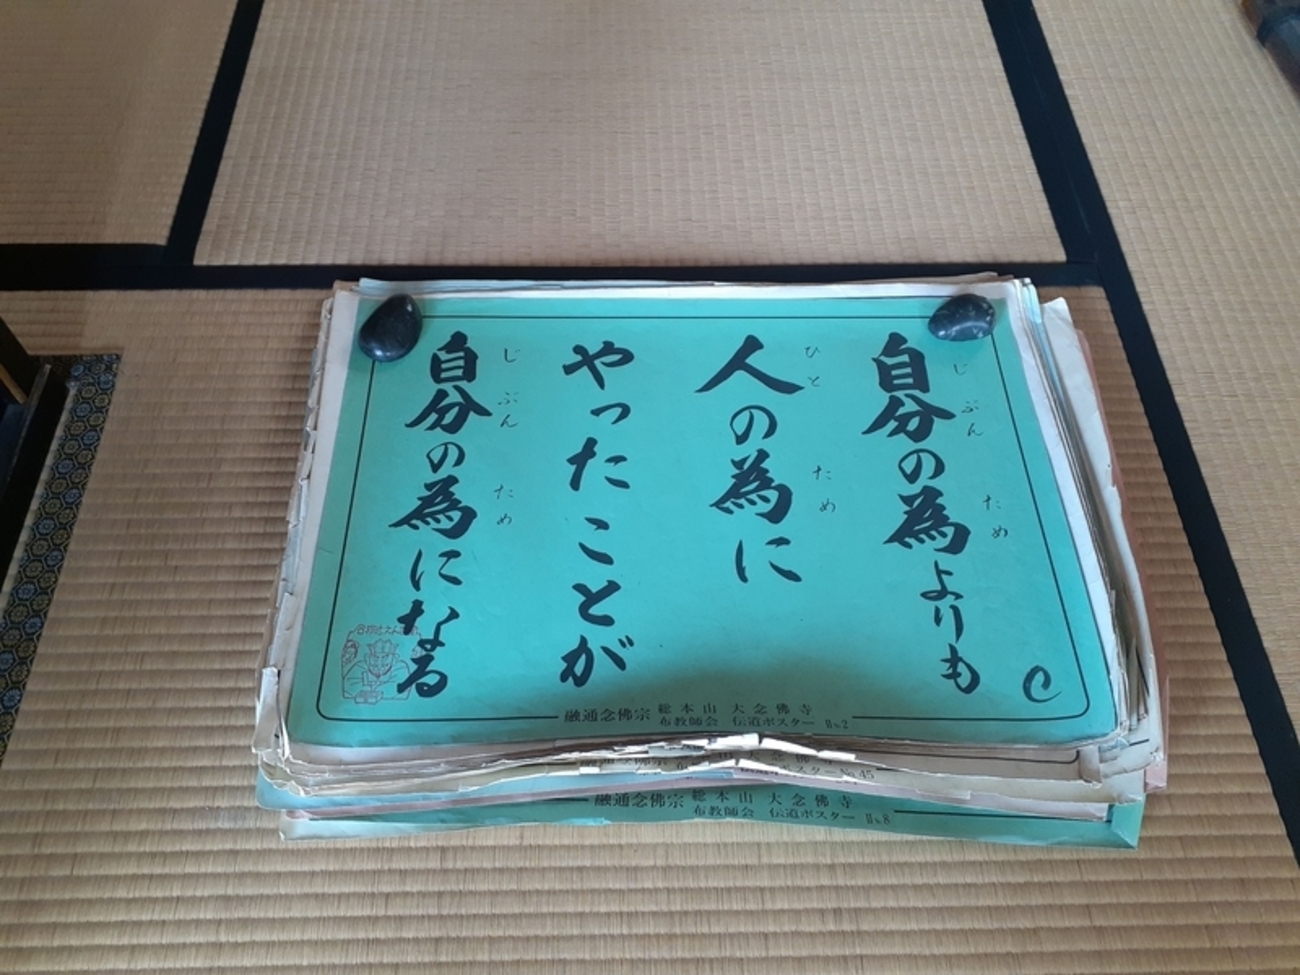 自分の為よりも
じぶん ため
人の為に
ひと ため
やったことが
自分の為になる
じぶん ため
融通念佛宗 総本山 大念佛寺
布教師会 伝道ポスター No.2
ポスターNo.45
融通念佛宗 総本山 大念佛寺
布教師会 伝道ポスター No.8